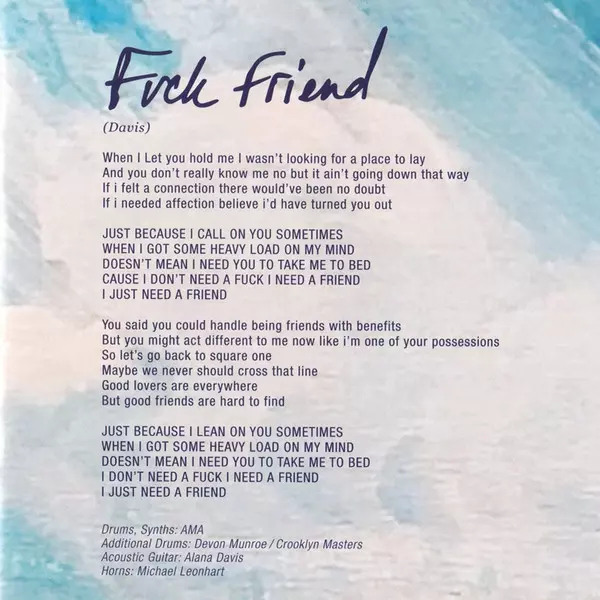 Fuck Friend
(Davis)
When I Let you hold me I wasn't looking for a place to lay
And you don't really know me no but it ain't going down that way
If i felt a connection there would've been no doubt
If i needed affection believe i'd have turned you out
JUST BECAUSE I CALL ON YOU SOMETIMES
WHEN I GOT SOME HEAVY LOAD ON MY MIND
DOESN'T MEAN I NEED YOU TO TAKE ME TO BED
CAUSE I DON'T NEED A FUCK I NEED A FRIEND
I JUST NEED A FRIEND
You said you could handle being friends with benefits
But you might act different to me now like i'm one of your possessions
So let's go back to square one
Maybe we never should cross that line
Good lovers are everywhere
But good friends are hard to find
JUST BECAUSE I LEAN ON YOU SOMETIMES
WHEN I GOT SOME HEAVY LOAD ON MY MIND
DOESN'T MEAN I NEED YOU TO TAKE ME TO BED
I DON'T NEED A FUCK I NEED A FRIEND
I JUST NEED A FRIEND
Drums, Synths: AMA
Additional Drums: Devon Munroe / Crooklyn Masters
Acoustic Guitar: Alana Davis
Horns: Michael Leonhart